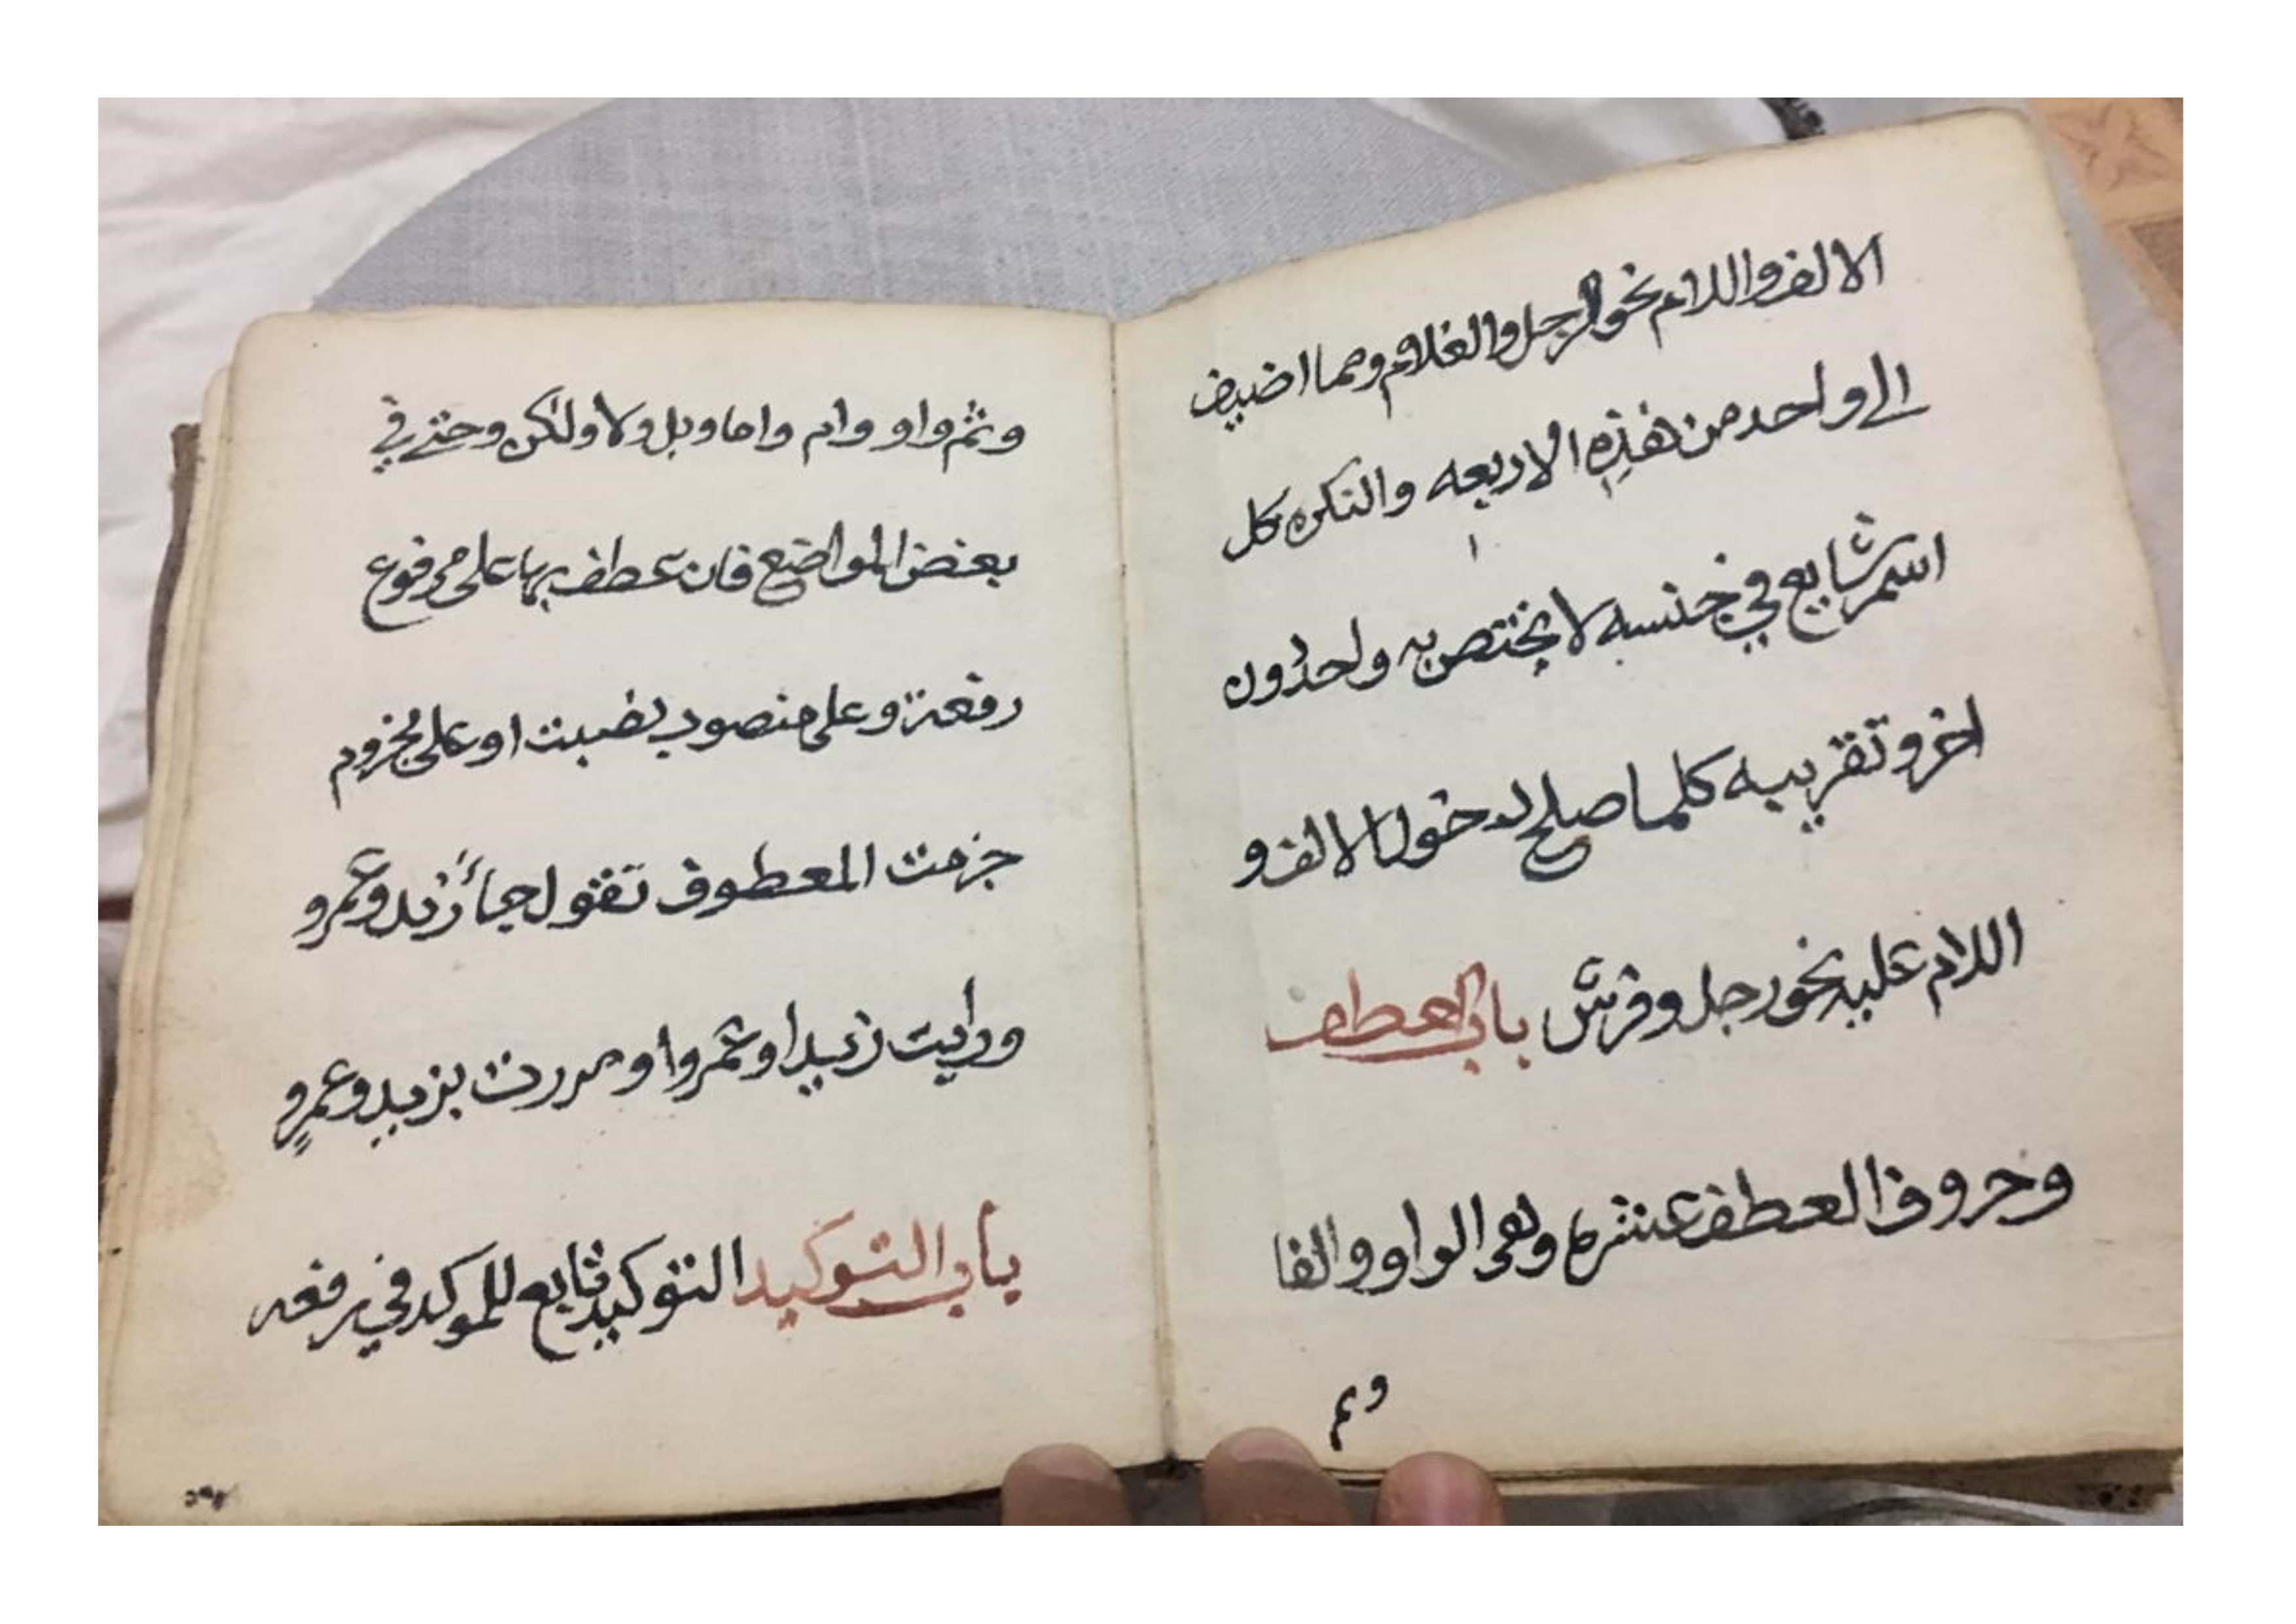 الالف واللام نحو الرجل والغلام وما اضيف
الى واحد من هذه الاربعه والنكره كل
اسم شايع في جنسه لا يختص به واحد دون
اخر وتقريبه كلما صلح لدخول الالف و
اللام عليه نحو رجل وفرس باب العطف
وحروف العطف عشره وهى الواو والفا
وثم
وثم واو وام واما وبل ولا ولكن وحتى في
بعض المواضع فان عطف بها على مرفوع
رفعت وعلى منصوب نصبت او على مجزوم
جزمت المعطوف تقول جاء زيد وعمرو
ورايت زيدا وعمروا ومررت بزيد وعمرو
باب التوكيد التوكيد تابع للموكد في رفعه